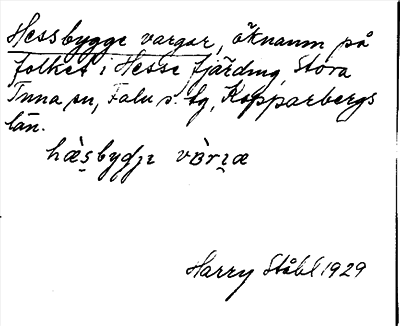 Hessbygge vargar, öknamn på
folket i Hesse fjärding, Stora
Tuna sn, Falu s. tg, Kopparbergs
län.
hæ̀s̨bydɟɪ vɒ̀rɪæ
Harry Ståhl 1929